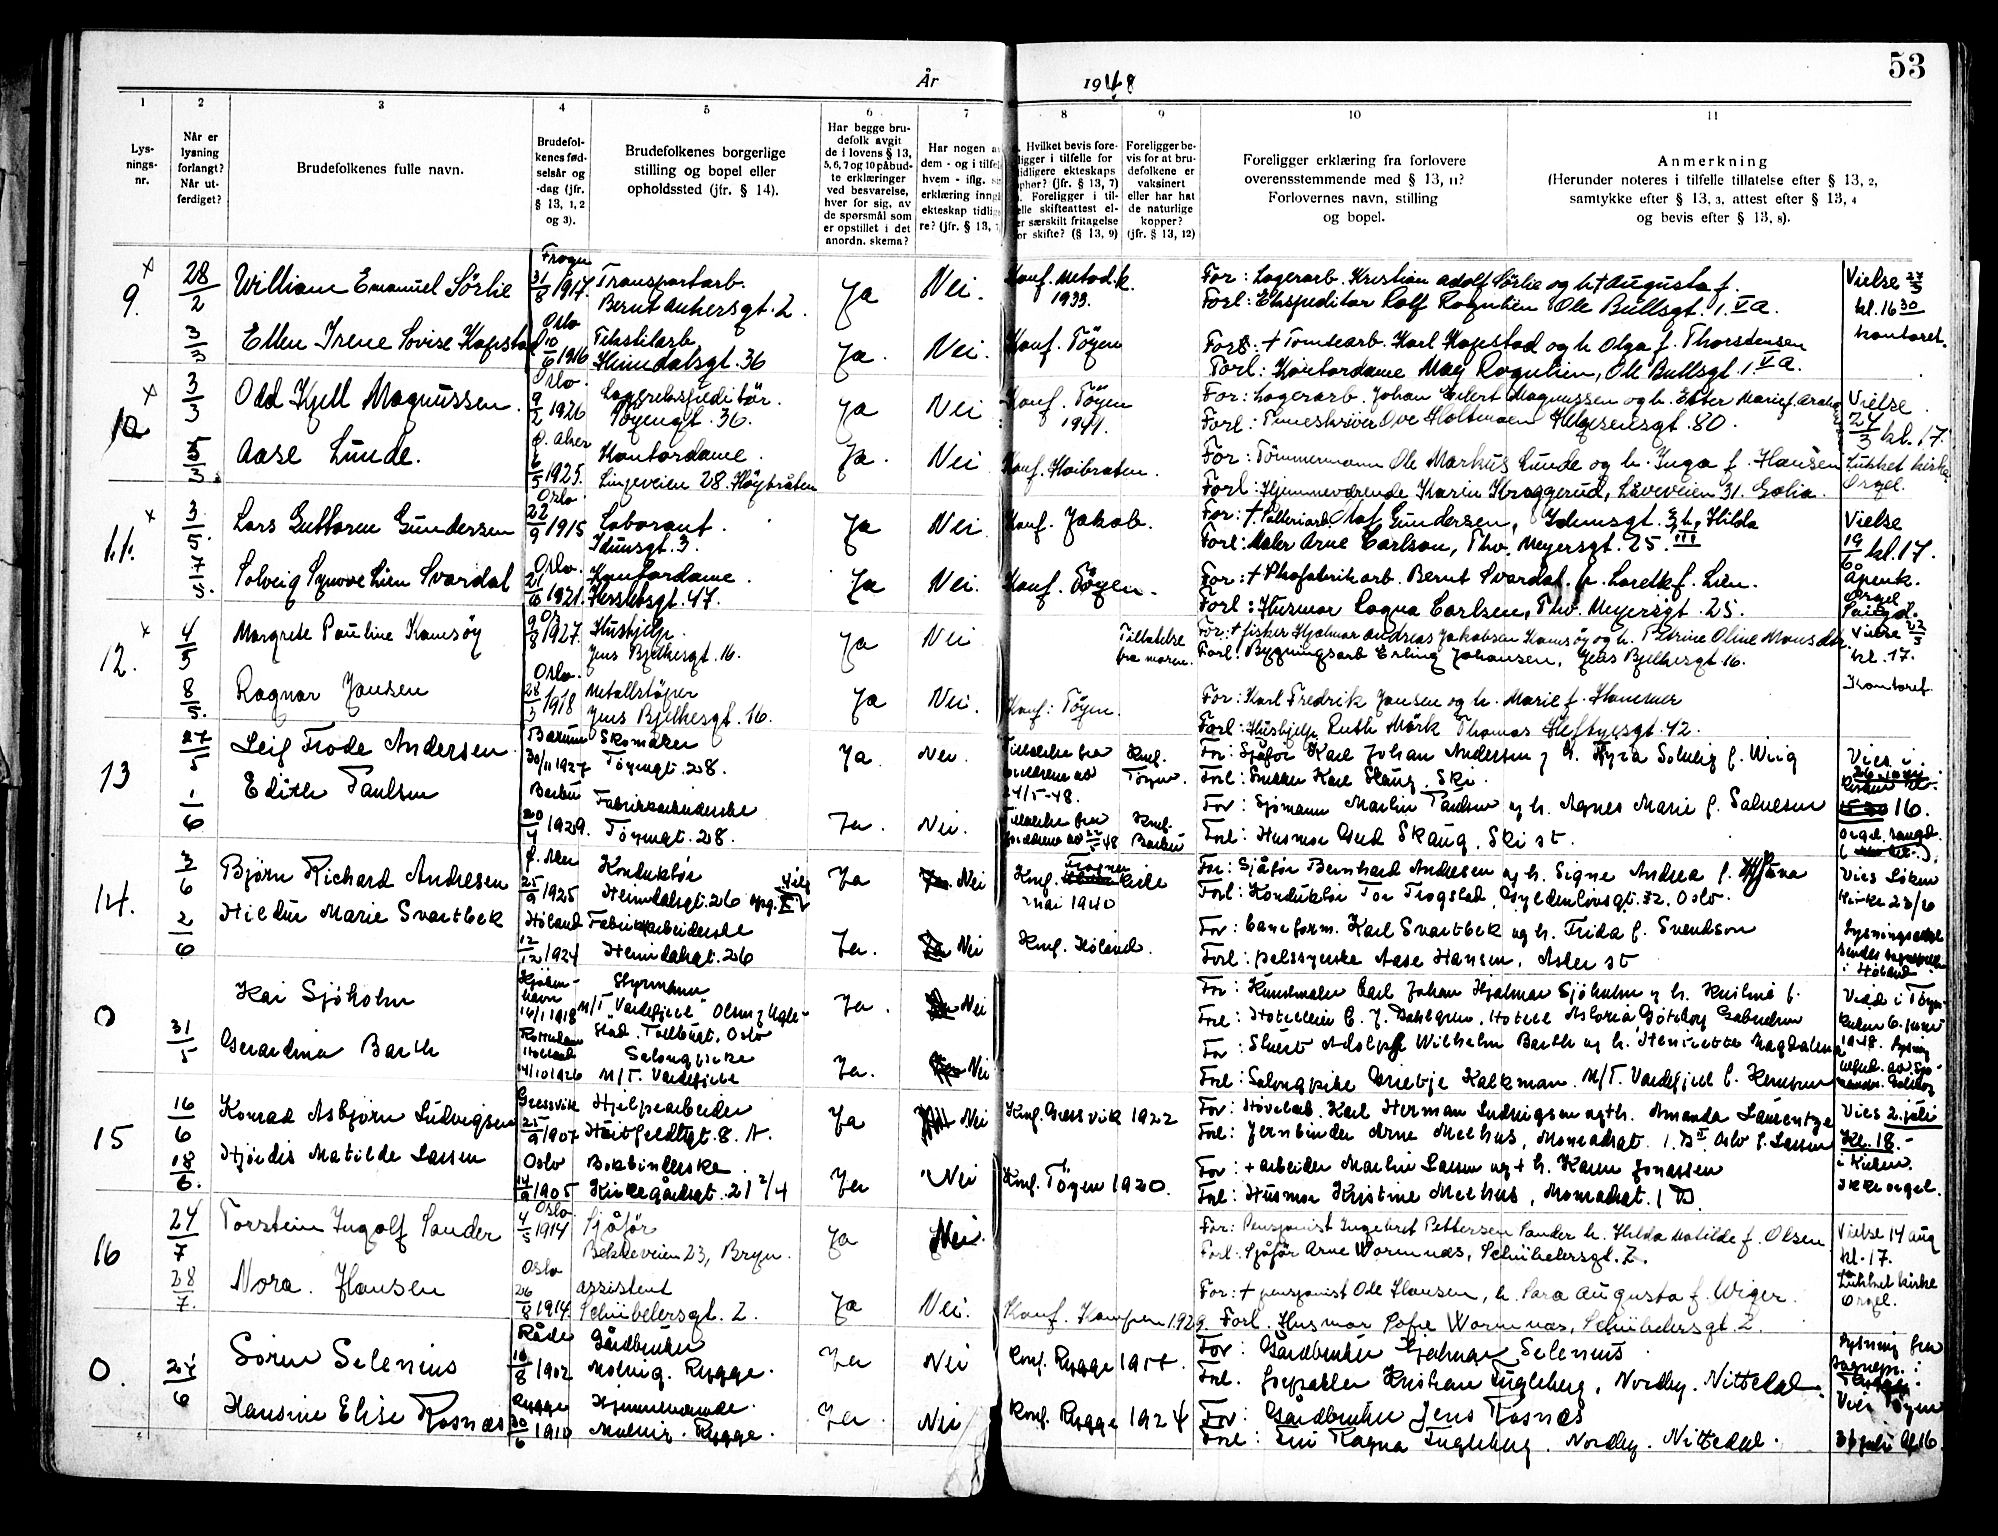 53
År 1948
1
2
3
4
5
6
7
8
9
10
11
Lys-
nings-
nr.
Når er
lysning
forlangt?
Når ut-
ferdiget?
Brudefolkenes fulle navn.
Brudefol-
kenes fød-
selsår og
-dag (jfr.
§ 13, 1, 2
og 3).
Brudefolkenes borgerlige
stilling og bopel eller
opholdssted (jfr. § 14).
Har begge bru-
defolk avgit
de i lovens § 13,
5, 6, 7 og 10 påbud-
te erklæringer
ved besvarelse,
hver for sig, av
de spørsmål som
er opstillet i det
anordn. skema?
Har nogen a
dem - og i tilfel
hvem - iflg.
erklæring inng
ekteskap tidlig
re? (jfr. § 13,
Hvilket bevis fore-
ligger i tilfelle for
tidligere ekteskaps
ophør? (jfr. § 13, 7)
Foreligger i til-
felle skifteattest el-
er særskilt fritagelse
for skifte? (§ 13, 9)
Foreligger be-
vis for at bru-
defolkene er
vaksinert
eller har hat
de naturlige
kopper?
(jfr. § 13, 12)
Foreligger erklæring fra forlovere
overensstemmende med § 13, 11?
Forlovernes navn, stilling
og bopel.
Anmerkning
(Herunder noteres i tilfelle tillatelse efter § 13, 2,
samtykke efter § 13, 3, attest efter § 13, 4
og bevis efter § 13, 8).
9. 28/2 William Emanuel Sørlie
Frogn 31/8 1917
Transportarb.
Bernt Ankersgt. 2
Ja Nei. Konf. Metod.k.
1933.
Far: Lagerarb. Kristian Adolf Sørlie og h+ Augusta f.
Forl: Ekspeditør Rolf Rognlien Ole Bullsgt. 1. VA.
Vielse 27/3
kl. 16 30
kontoret.
3/3 Ellen Irene Lovise Kopstad
Oslo 10/6 1916
Tekstilarb.
Heimdalsgt. 36
Ja. Nei. Konf. Tøyen
Far: + Tomtearb. Karl Kopstad og h. Olga f. Thorstensen
Forl: Kontordame May Rognlien, Ole Bullsgt. 1 VA.
10 3/3 Odd Kjell Magnussen
Oslo. 9/2 1926
Lagerekspeditør.
Tøyengt. 36.
Ja Nei Konf. Tøyen
1941.
Far: Lagerarb. Johan Eilert Magnussen og h. Ester Marie
Forl: Timeskriver Ove Holtmoen Helgesensgt. 80.
Vielse
27/3 kl. 17.
5/3 Aase Lunde.
Ø. Aker 6/5 1925.
Kontordame.
Linjeveien 28. Høybråten
Ja. Nei Konf. Høibraten.
Far: Tømmermann Ole Markus Lunde og h. Inga f. Hansen
Forl: Hjemmeværende Karin Kraggerud, Liaveien 31.
Lukket kirke
Orgel.
11. 3/5 Lars Guttorm Gundersen
Oslo 22/9 1915
Laborant.
Idunsgt. 3.
Ja Nei Konf. Jakob.
Forl: Maler Arne Carlson, Thv. Meyersgt. 25. III
Vielse
19/6 kl. 17.
Solveig Synøve Lien Svardal
Oslo. 1921.
Kontordame.
Herslebsgt. 47.
Ja Nei. Konf. Tøyen.
Forl: Husmor Ragna Carlsen, Thv. Meyersgt. 25.
Orgel
12. 4/5 Margrete Pauline Kamsøy
1927.
Hushjelp.
Jens Bjelkesgt. 16.
Ja Nei
Tillatelse
fra moren.
Far: + fisker Hjalmar Andreas Jakobsen Kamsøy og h. Petrine Oline Monsdtr.
Forl. Bygningsarb Erling Johansen, Jens Bjelkesgt 16.
Vielse 22/5
kl. 17.
Kontoret
8/5. Ragnar Jansen
Oslo. 28/3 1918
Metallstøper
Jens Bjelkesgt. 16.
Ja Nei. Konf: Tøyen.
Far: Karl Fredrik Jansen og h. Marie f. Hammer
Forl: Hushjelp Ruth Mørk Thomas Heftyesgt. 42.
13 27/5 Leif Frode Andersen
Bærum 30/11 1927
Skomaker
Tøyengt. 28.
Ja. Nei.
Tillatelse fra
foreldrene av
24/5-48.
Konf.
Tøyen
Far: Sjåfør Karl Johan Andersen og h. Thyra Solveig f. Wiig
Forl: Snekker Karl Skaug. Ski.
Vies i
16.
1/6 Edith Paulsen
20/4 1929.
Fabrikkarbeiderske
Tøyengt. 28.
Ja. Nei.
Tillatelse fra
foreldrene av 22/5 48
Konf.
Far: Sjømann Martin Paulsen og h. Agnes Marie f. Salvesen
Forl: Husmor Aud Skaug. Ski st.
14. 3/6 Bjørn Richard Andresen
Ø. Aker 25/9 1925
Konduktør
Heimdalsgt. 26 opg.
Ja Nei
Konf. Frogner kirke
mai 1940
Far: Sjåfør Bernhard Andresen og h. Signe Andrea f.
Forl: Konduktør Tor Trogstad, Gyldenløvsgt. 32. Oslo.
Vies Løken
kirke 23/6
2/6 Hildur Marie Svartbek
Høland 12/12 1924
Fabrikkarbeiderske
Heimdalsgt. 26
Ja. Nei Konf. Høland.
Far: baneform. Karl Svartbek og h. Frida f. Svendsen
Forl: pelssyerske Aase Hansen. Asker st
i Høland
0 31/5 Kai Sjøholm
Kjøben-
havn
14/1 1918
Styrmann
M/T. "Vardefjell"
Ja. Nei
Far: Kunstmaler Carl Johan Hjalmar Sjøholm og h.
Forl: Hotelleier C. J. Dahlgren. Hotell Astoria, Göteborg
Vied i Tøyen-
kirken 6. juni
1948.
Gerardina Barth
Rotterdam
Holland
14/10 1926
Salongpike
M/T. Vardefjell
Ja. Nei
Far: Adolph Wilhelm Barth og h. Henriette Magdalena
Forl: Salongpike Grietje Kalkman. M/T. Vardefjell
15 16/6 Konrad Asbjørn Ludvigsen
Gressvik 25/9 1907
Hjelpearbeider
Huitfeldtsgt. 8. A.
Ja Nei Konf. Gressvik 1922
Far: Høvelarb. Karl Herman Ludvigsen og h. Amanda
Forl: Jernbinder Arne Melhus, Monradsgt. 1. B II Oslo
Vies 2. juli
Kl. 18.-
i Kirken.
Ikke orgel.
18/6. Hjørdis Matilde Larsen
Oslo 14/9 1905
Bokbinderske.
Kirkegårdsgt. 21 2/4
Ja Nei Konf. Tøyen 1920.
Far: + arbeider Martin Larsen og + h. Karen Jonassen
Forl: Husmor Kristine Melhus, Monradsgt. 1 B.
16 24/7 Torstein Ingolf Sander
Oslo 4/5 1914
Sjåfør
Bekkeveien 23, Bryn.
Ja Nei.
Far: Pensjonist Ingebret Pettersen Sander h. Hilda Matilde f. Olsen
Forl: Sjåfør Arne Wormnæs, Schübelersgt. 2.
Vielse 14 aug
kl. 17.
Lukket kirke
Orgel.
28/7. Nora Hansen
Oslo 26/8 1914
Assistent
Schübelersgt. 2.
Ja Nei. Konf. Kampen 1929.
Far: + pensjonist Ole Hansen, h. Sara Augusta f. Wiger.
Forl. Husmor Sofie Wormnæs, Schübelersgt. 2.
0. 24/6 Søren Selenius
Råde 10/8 1902
Gårdbruker
Rygge.
Ja Nei Konf. Rygge
Far: Gårdbruker Hjalmar Selenius.
Forl. Kristian Fugleberg, Nordby. Nittedal.
Lysning fra
Hansine Elise Rosnæs
Rygge 30/6 1910
Hjemmeværende.
Rygge.
Ja. Nei Konf. Rygge 1924
Far: Gårdbruker Jens Rosnæs
Forl: Fru Ragna Fugleberg. Nordby. Nittedal.
Vies Tøyen
31 juli kl 16.